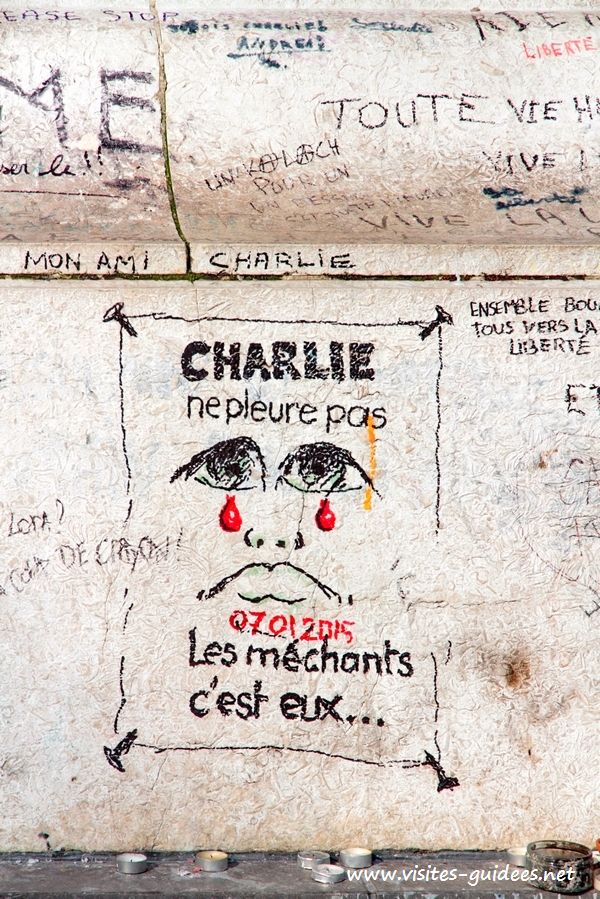 EASE STOP
ANDREW
LIBERTE
ME
TOUTE VIE H
VIVE L
UN KALACH
POUR UN
UN DESS
VIVE LA L
MON AMI CHARLIE
ENSEMBLE BOU
TOUS VERS LA
LIBERTÉ
ET
CHARLIE
ne pleure pas
DE CRAYON!
07.01.2015
Les méchants
c'est eux...
www.visites-guidees.net